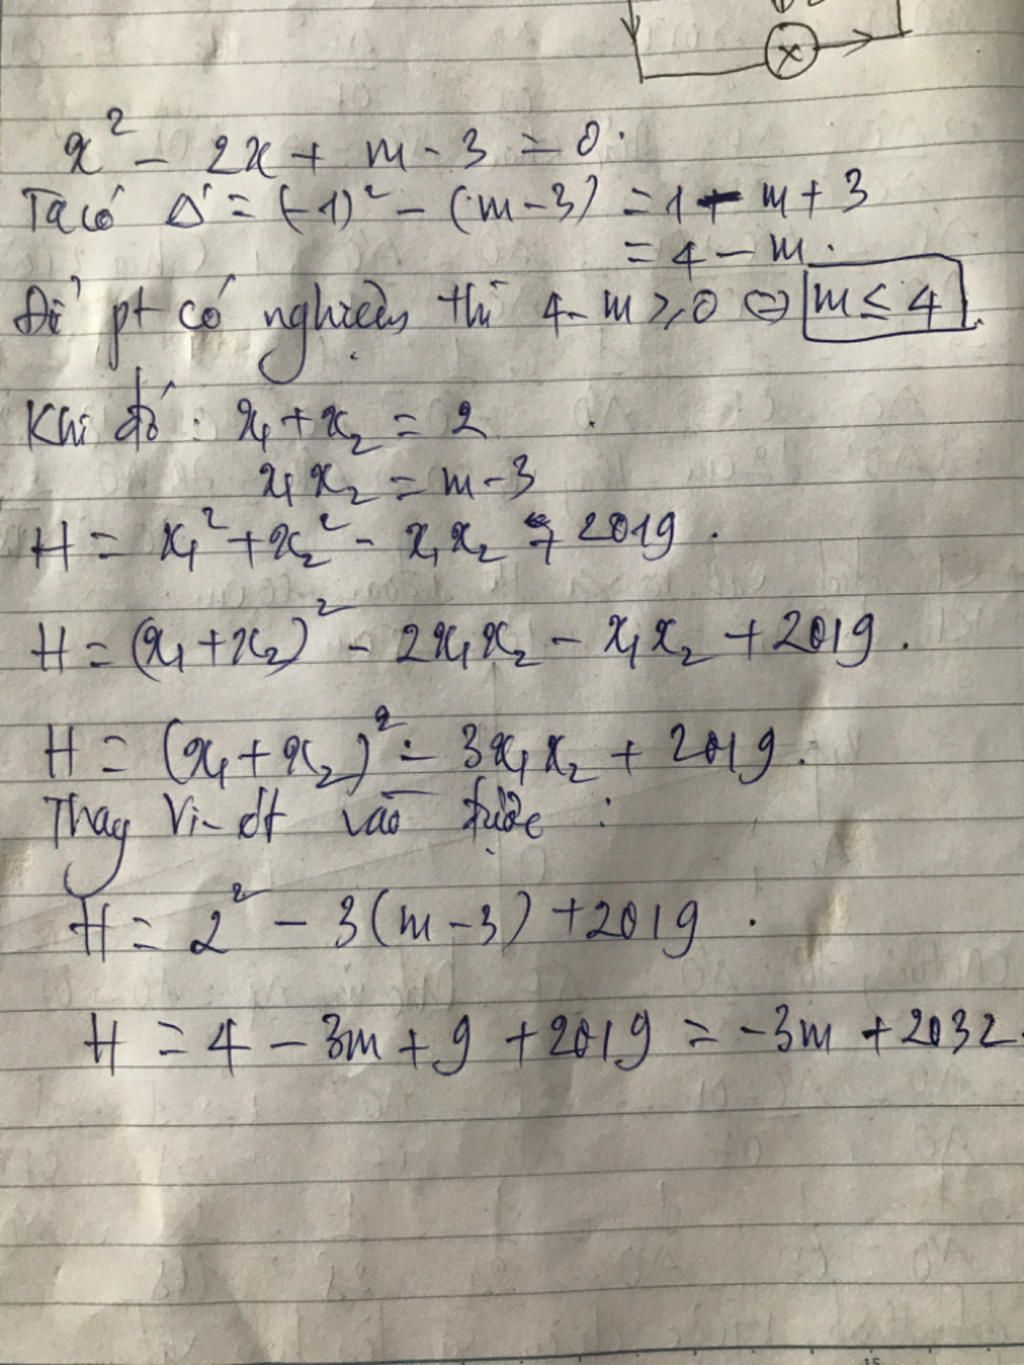 x² - 2x + m - 3 = 0.
Ta có Δ' = (-1)² - (m-3) = 1 - m + 3
= 4 - m.
Để pt có nghiệm thì 4 - m ≥ 0 ⇔ m ≤ 4.
Khi đó: x₁ + x₂ = 2
x₁x₂ = m - 3
H = x₁² + x₂² - x₁x₂ + 2019.
H = (x₁ + x₂)² - 2x₁x₂ - x₁x₂ + 2019.
H = (x₁ + x₂)² - 3x₁x₂ + 2019.
Thay Vi-ét vào được:
H = 2² - 3(m-3) + 2019.
H = 4 - 3m + 9 + 2019 = -3m + 2032.